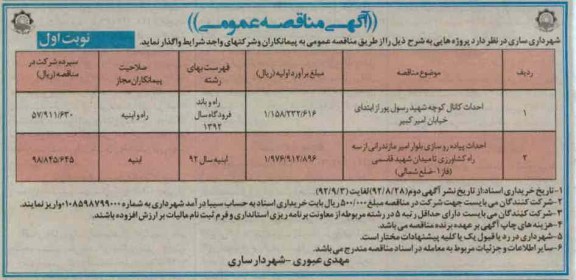 ((آگهی مناقصه عمومی))
نوبت اول
شهرداری ساری در نظر دارد پروژه هایی به شرح ذیل را از طریق مناقصه عمومی به پیمانکاران و شرکتهای واجد شرایط واگذار نماید.
ردیف	موضوع مناقصه	مبلغ برآورد اولیه (ریال)	فهرست بهای رشته	صلاحیت پیمانکاران مجاز	سپرده شرکت در مناقصه (ریال)
۱	احداث کانال کوچه شهید رسول پور از ابتدای خیابان امیر کبیر	۱/۱۵۸/۲۳۲/۶۱۶	راه و باند فرودگاه سال ۱۳۹۲	راه و ابنیه	۵۷/۹۱۱/۶۳۰
۲	احداث پیاده رو سازی بلوار امیر مازندرانی از سه راه کشاورزی تا میدان شهید قاسمی (فاز ۱-ضلع شمالی)	۱/۹۷۶/۹۱۲/۸۹۶	ابنیه سال ۹۲	ابنیه	۹۸/۸۴۵/۶۴۵
۱-تاریخ خریداری اسناد: از تاریخ نشر آگهی دوم (۹۲/۸/۲۸) لغایت (۹۲/۹/۳)
۲-شرکت کنندگان می بایست جهت شرکت در مناقصه مبلغ ۵۰۰/۰۰۰ ریال بابت خریداری اسناد به حساب سیبا درآمد شهرداری به شماره ۰۱۰۸۵۹۸۷۹۹۰۰۰ واریز نمایند.
۳-شرکت کنندگان می بایست دارای حداقل رتبه ۵ در رشته مربوطه از معاونت برنامه ریزی استانداری و فرم ثبت نام مالیات بر ارزش افزوده باشند.
۴-هزینه های چاپ آگهی بر عهده برنده مناقصه می باشد.
۵-شهرداری در رد یا قبول یک یا کلیه پیشنهادات مختار است.
۶-سایر اطلاعات و جزئیات مربوط به معامله در اسناد مناقصه مندرج می باشد.
مهدی عبوری - شهردار ساری